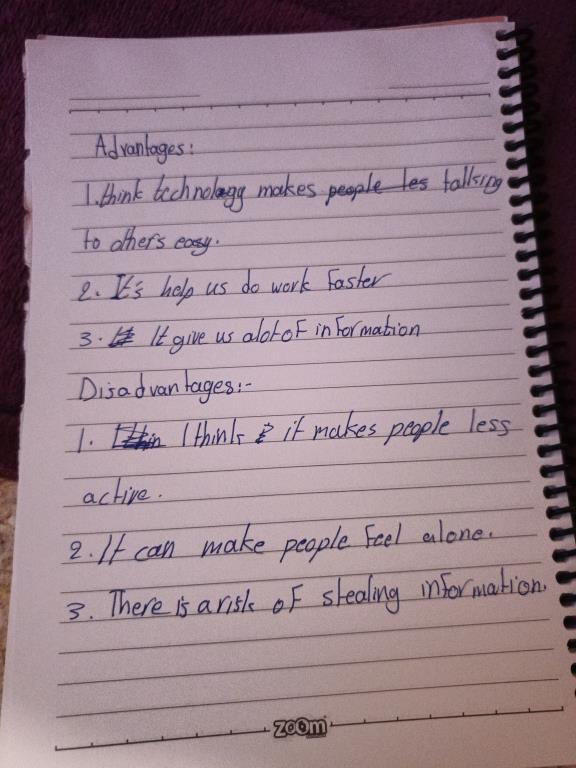 Advantages:
1. think technology makes people les talking
to others easy.
2. It's help us do work faster
3. It give us alot of information
Disadvantages:-
1. I think it makes people less
active.
2. It can make people feel alone.
3. There is a risk of stealing information.
zoom